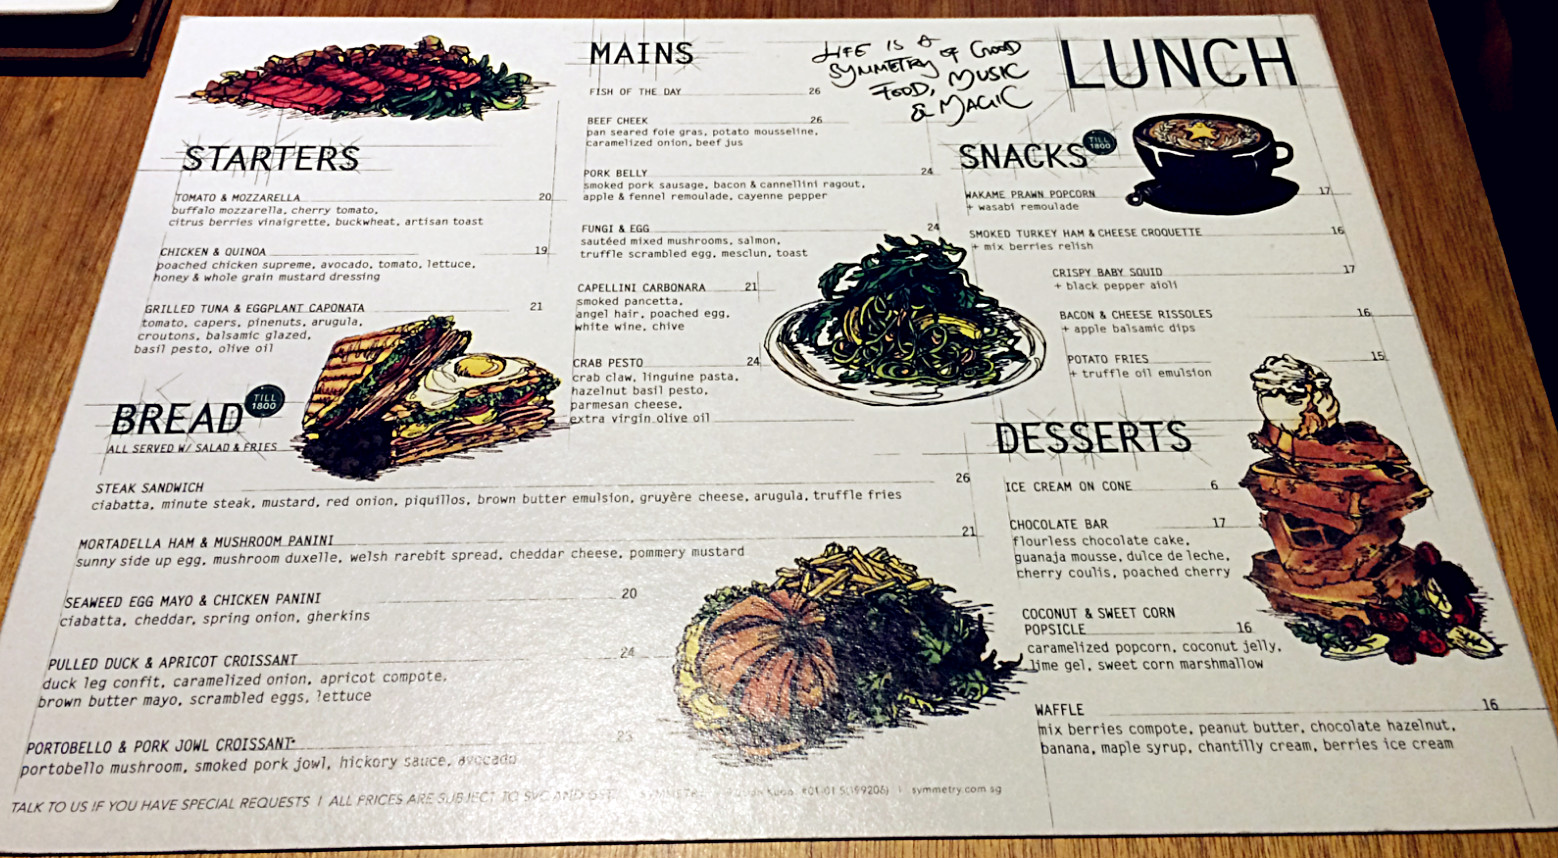 LUNCH
LIFE IS A
SYMMETRY of GOOD
FOOD, MUSIC
& MAGIC
STARTERS
TOMATO & MOZZARELLA 20
buffalo mozzarella, cherry tomato,
citrus berries vinaigrette, buckwheat, artisan toast
CHICKEN & QUINOA 19
poached chicken supreme, avocado, tomato, lettuce,
honey & whole grain mustard dressing
GRILLED TUNA & EGGPLANT CAPONATA 21
tomato, capers, pinenuts, arugula,
croutons, balsamic glazed,
basil pesto, olive oil
BREAD
TILL
1800
ALL SERVED W/ SALAD & FRIES
STEAK SANDWICH 26
ciabatta, minute steak, mustard, red onion, piquillos, brown butter emulsion, gruyère cheese, arugula, truffle fries
MORTADELLA HAM & MUSHROOM PANINI 21
sunny side up egg, mushroom duxelle, welsh rarebit spread, cheddar cheese, pommery mustard
SEAWEED EGG MAYO & CHICKEN PANINI 20
ciabatta, cheddar, spring onion, gherkins
PULLED DUCK & APRICOT CROISSANT 24
duck leg confit, caramelized onion, apricot compote,
brown butter mayo, scrambled eggs, lettuce
PORTOBELLO & PORK JOWL CROISSANT* 23
portobello mushroom, smoked pork jowl, hickory sauce, avocado
MAINS
FISH OF THE DAY 26
BEEF CHEEK 26
pan seared foie gras, potato mousseline,
caramelized onion, beef jus
PORK BELLY 24
smoked pork sausage, bacon & cannellini ragout,
apple & fennel remoulade, cayenne pepper
FUNGI & EGG 24
sautéed mixed mushrooms, salmon,
truffle scrambled egg, mesclun, toast
CAPELLINI CARBONARA 21
smoked pancetta,
angel hair, poached egg,
white wine, chive
CRAB PESTO 24
crab claw, linguine pasta,
hazelnut basil pesto,
parmesan cheese,
extra virgin olive oil
SNACKS
TILL
1800
WAKAME PRAWN POPCORN 17
+ wasabi remoulade
SMOKED TURKEY HAM & CHEESE CROQUETTE 16
+ mix berries relish
CRISPY BABY SQUID 17
+ black pepper aioli
BACON & CHEESE RISSOLES 16
+ apple balsamic dips
POTATO FRIES 15
+ truffle oil emulsion
DESSERTS
ICE CREAM ON CONE 6
CHOCOLATE BAR 17
flourless chocolate cake,
guanaja mousse, dulce de leche,
cherry coulis, poached cherry
COCONUT & SWEET CORN
POPSICLE 16
caramelized popcorn, coconut jelly,
lime gel, sweet corn marshmallow
WAFFLE 16
mix berries compote, peanut butter, chocolate hazelnut,
banana, maple syrup, chantilly cream, berries ice cream
TALK TO US IF YOU HAVE SPECIAL REQUESTS | ALL PRICES ARE SUBJECT TO SVC AND GST SYMMETRY #01-01 S(199206) | symmetry.com.sg